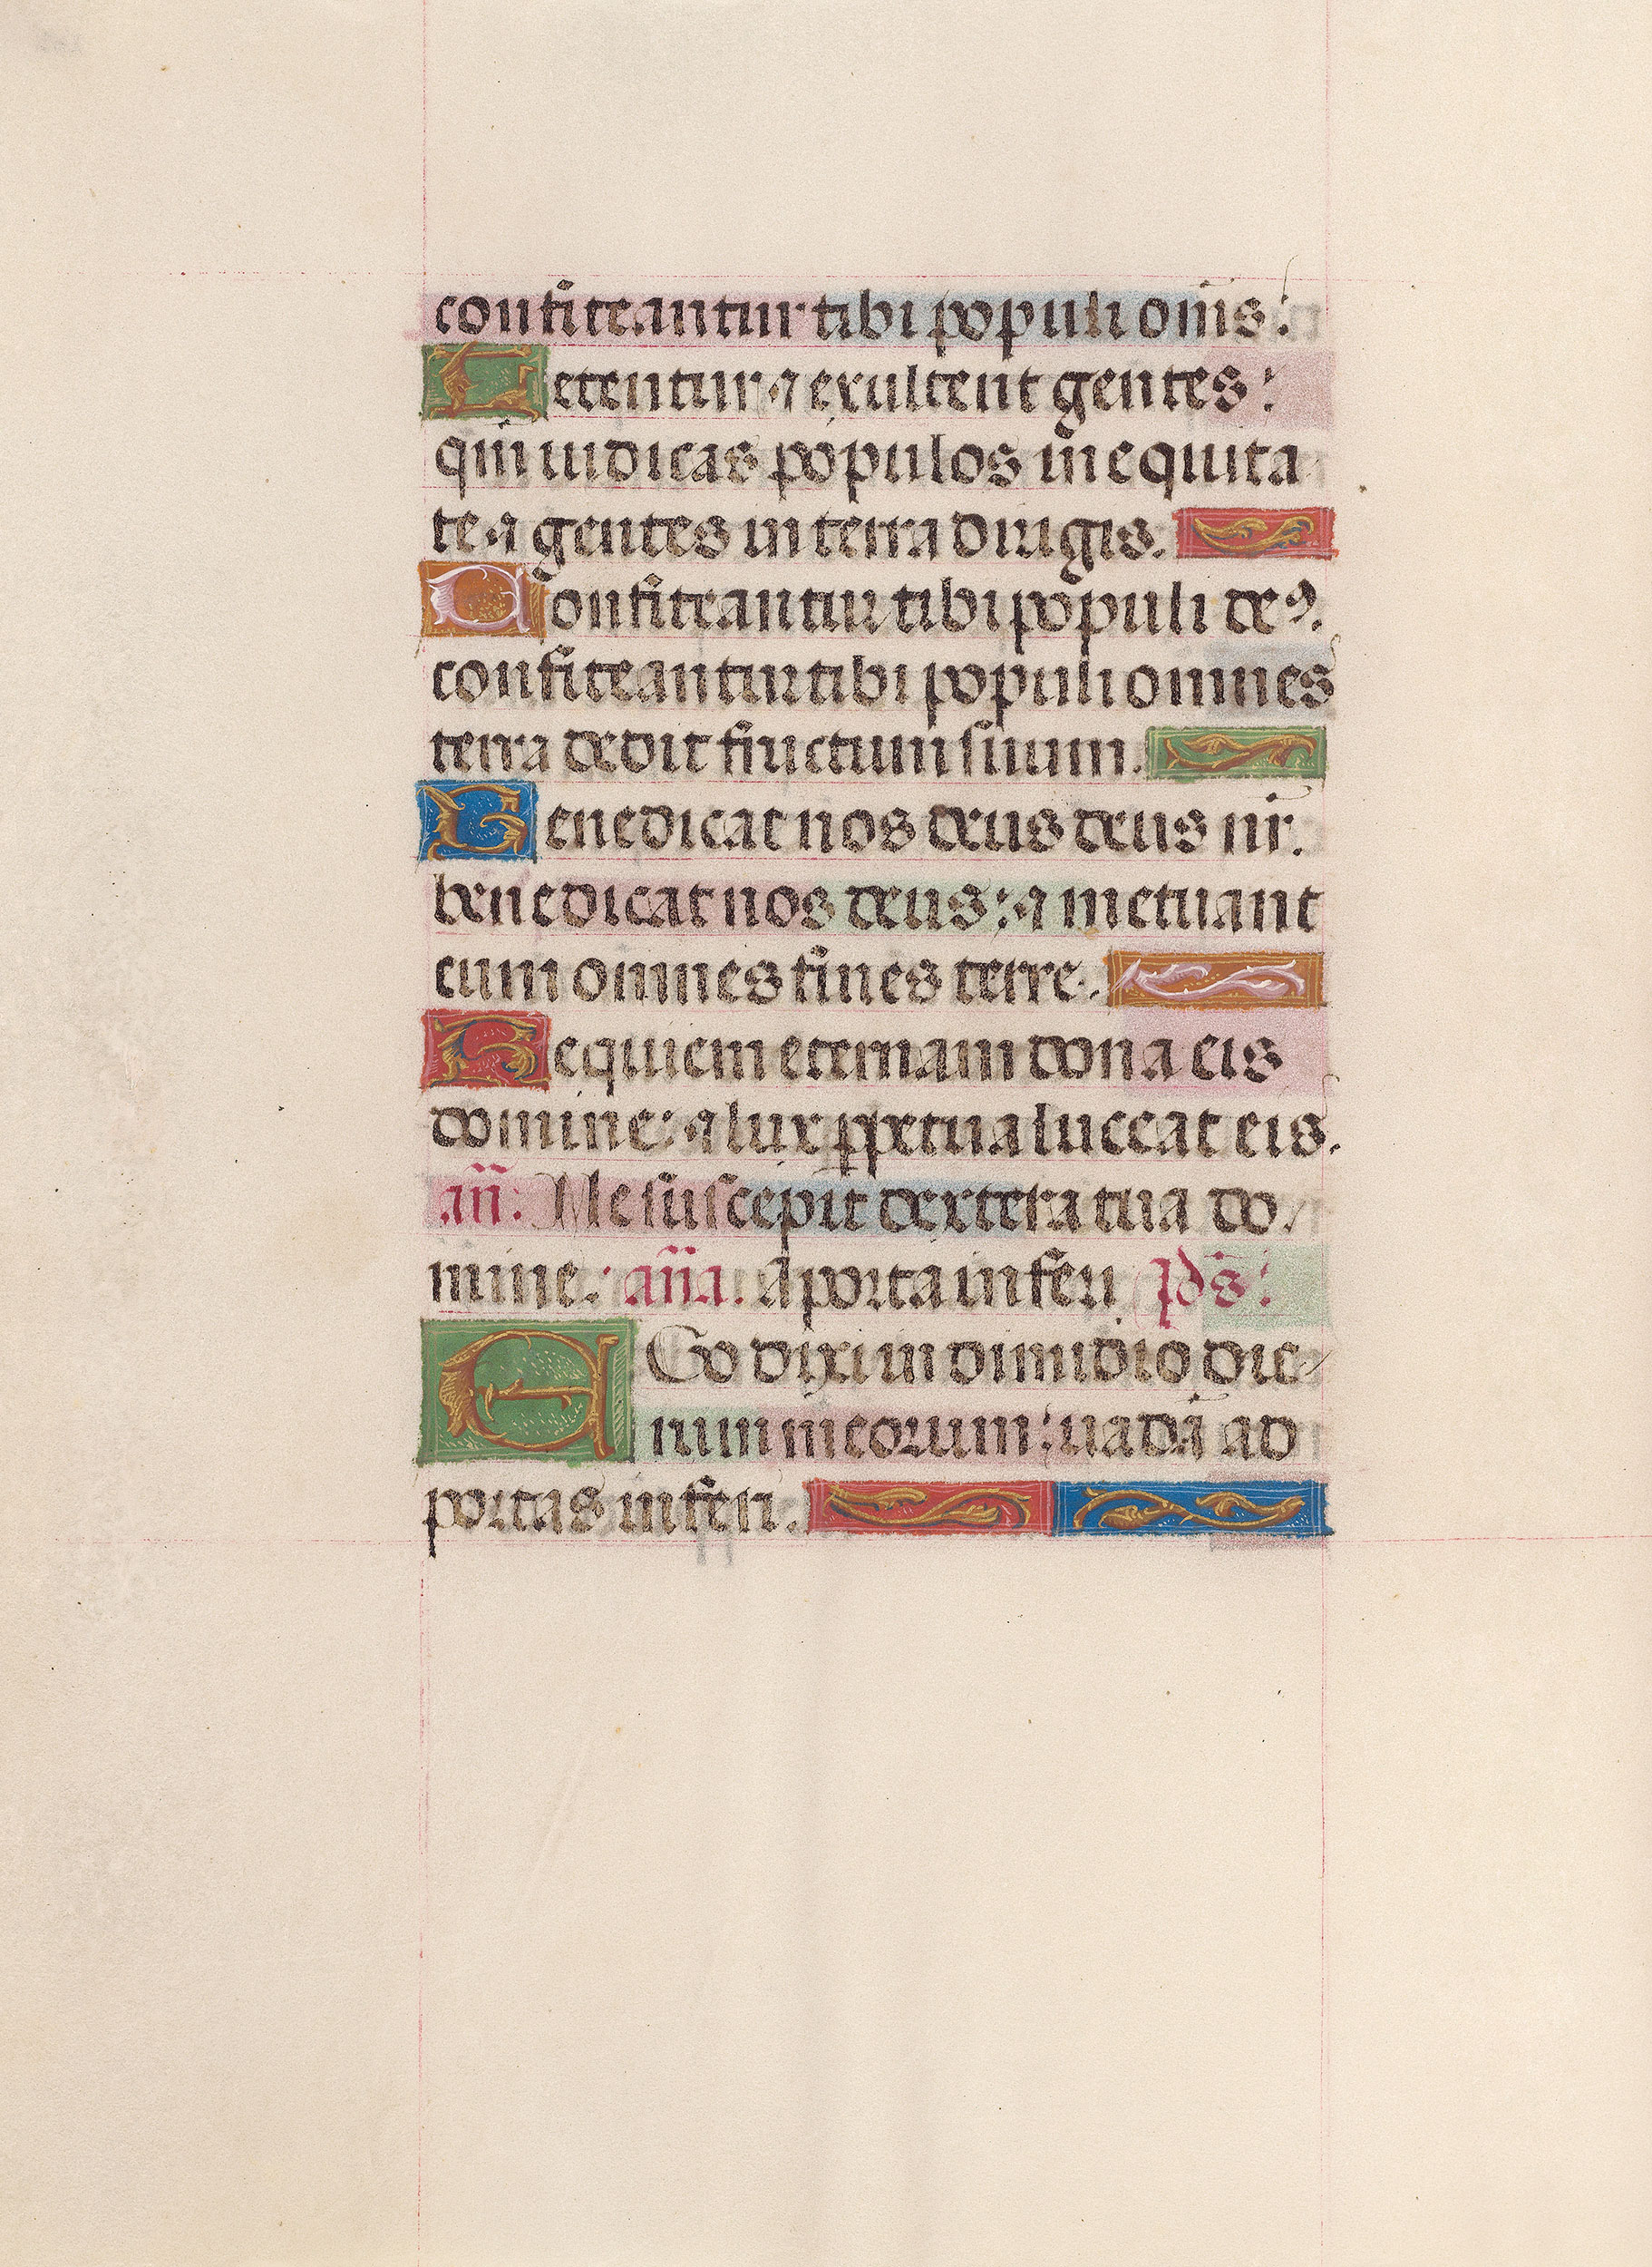 confiteantur tibi populi om̄s:
Letentur ⁊ exultent gentes:
qm̄ iudicas populos in equita
te ⁊ gentes in terra dirigis.
Confiteantur tibi populi deꝰ.
confiteantur tibi populi omnes
terra dedit fructum suum.
Benedicat nos deus deus nr̄.
benedicat nos deus: ⁊ metuant
eum omnes fines terre.
Requiem eternam dona eis
domine: ⁊ lux ꝑpetua luceat eis.
an̄: Me suscepit dextera tua do
mine: an̄a. A porta inferi ps̄:
EGo dixi in dimidio die
rum meorum: uadā ad
portas inferi.